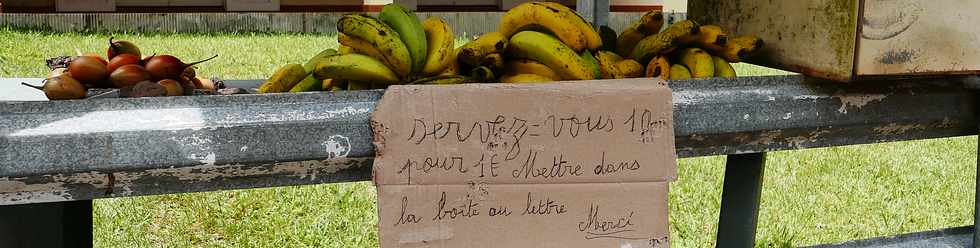 servez=vous 10
pour 1€ Mettre dans
la boite au lettre Merci